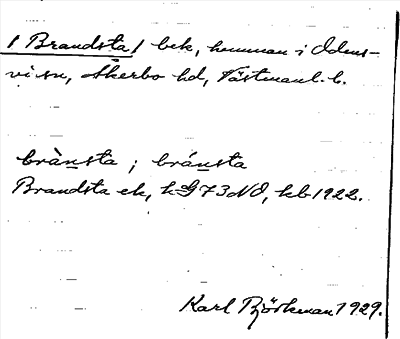 / Brandsta / bek, hemman i Odens-
vi sn, Åkerbo hd, Västmanl. l.
brànsta ; bránsta
Brandsta ek, k G73NO, kb 1922.
Karl Björkman 1929.